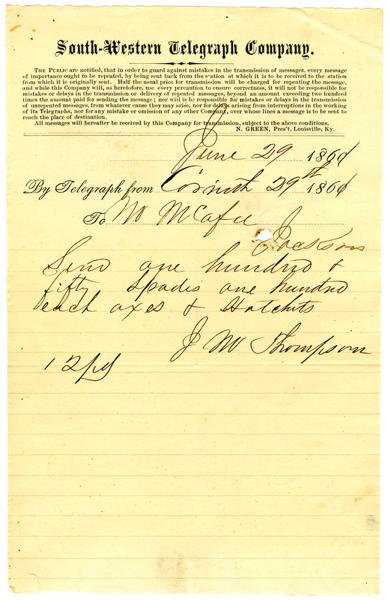 South-Western Telegraph Company.
THE PUBLIC are notified, that in order to guard against mistakes in the transmission of messages, every message
of importance ought to be repeated, by being sent back from the station at which it is to be received to the station
from which it is originally sent. Half the usual price for transmission will be charged for repeating the message,
and while this Company will, as heretofore, use every precaution to ensure correctness, it will not be responsible for
mistakes or delays in the transmission or delivery of repeated messages, beyond an amount exceeding two hundred
times the amount paid for sending the message; nor will it be responsible for mistakes or delays in the transmission
of unrepeated messages, from whatever cause they may arise, nor for delays arising from interruptions in the working
of its Telegraphs, nor for any mistake or omission of any other Company, over whose lines a message is to be sent to
reach the place of destination.
All messages will hereafter be received by this Company for transmission, subject to the above conditions.
N. GREEN, Pres't, Louisville, Ky.
June 29 1861
By Telegraph from Corinth 29th 1861
To W McAfee
Jackson
Send one hundred &
fifty spades one hundred
each axes & Hatchets
J W Thompson
12 pd